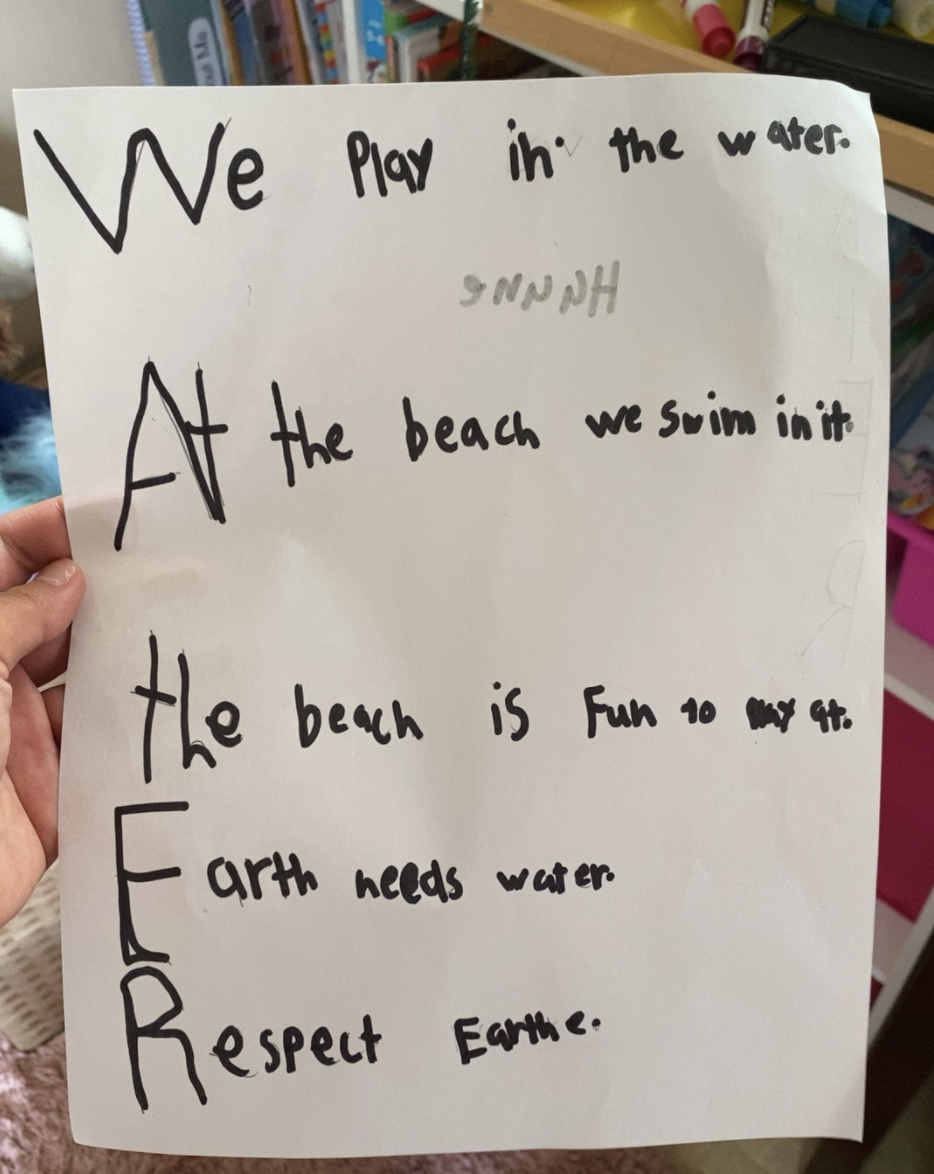 We Play in the water.
At the beach we swim in it.
the beach is Fun to at.
Earth needs water.
Respect Earthe.